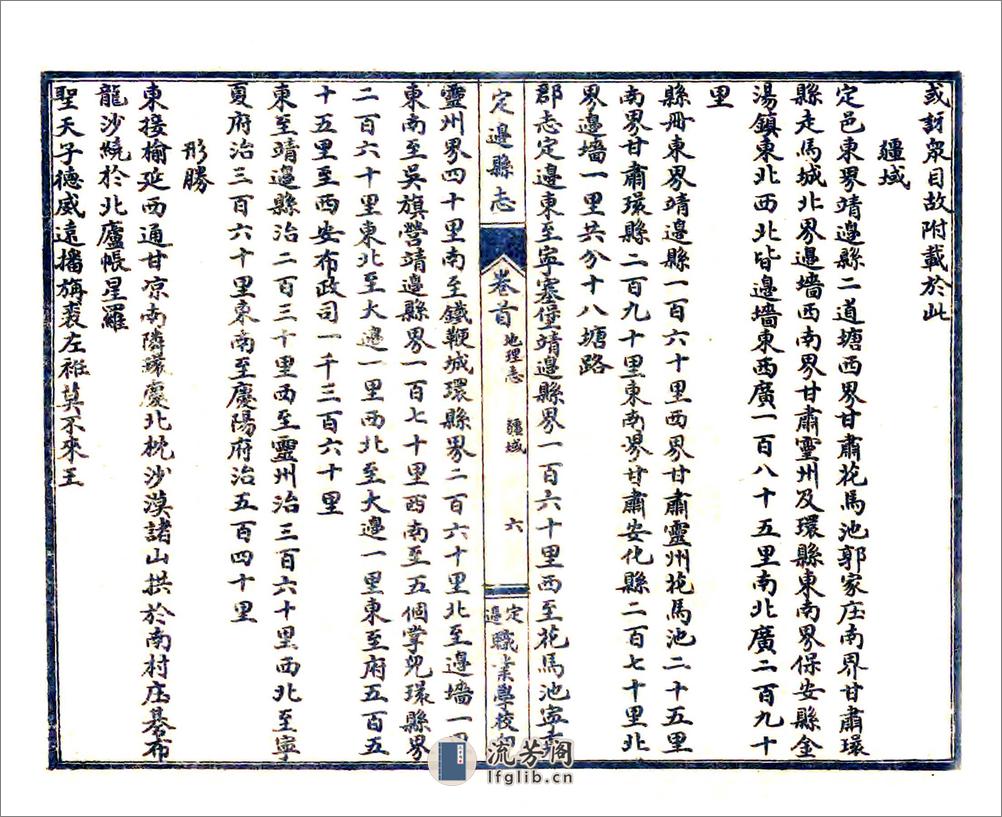 或訝衆目故附載於此
疆域
定邑東界靖邊縣二道塘西界甘肅花馬池郭家庄南界甘肅環
縣走馬城北界邊墻西南界甘肅靈州及環縣東南界保安縣金
湯鎮東北西北皆邊墻東西廣一百八十五里南北廣二百九十
里
縣册東界靖邊縣一百六十里西界甘肅靈州花馬池二十五里
南界甘肅環縣二百九十里東南界甘肅安化縣二百七十里北
界邊墻一里共分十八塘路
郡志定邊東至寧塞堡靖邊縣界一百六十里西至花馬池
定邊縣志
卷首
地理志
疆域
六
定邊職業學校
靈州界四十里南至鐵鞭城環縣界二百六十里北至邊墻一
東南至吳旗營靖邊縣界一百七十里西南至五個掌兒環縣界
二百六十里東北至大邊一里西北至大邊一里東至府五百五
十五里至西安布政司一千三百六十里
東至靖邊縣治二百三十里西至靈州治三百六十里西北至寧
夏府治三百六十里東南至慶陽府治五百四十里
形勝
東接榆延西通甘凉南隣環慶北枕沙漠諸山拱於南村庄碁布
龍沙繞於北廬帳星羅
聖天子德威遠播旃裘左袵莫不來王
流芳阁
lfglib.cn